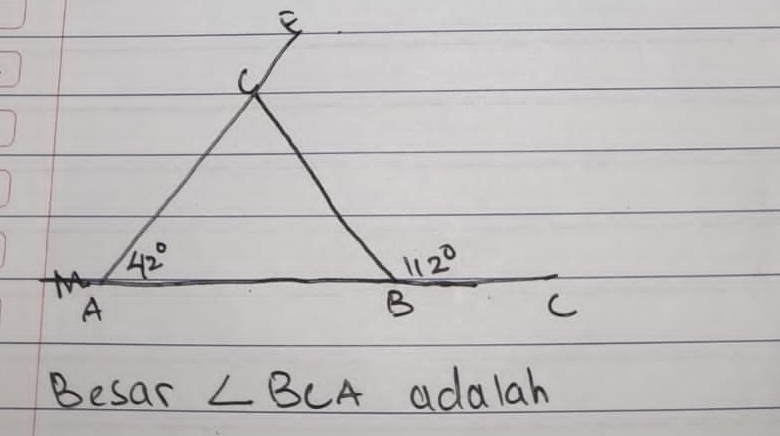 E
C
42°
112°
A
B
C
Besar ∠ BCA adalah